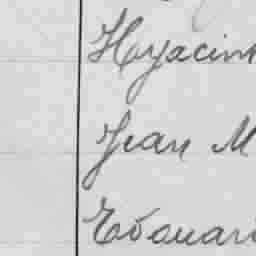 Hyacint
Jean M
Edouard